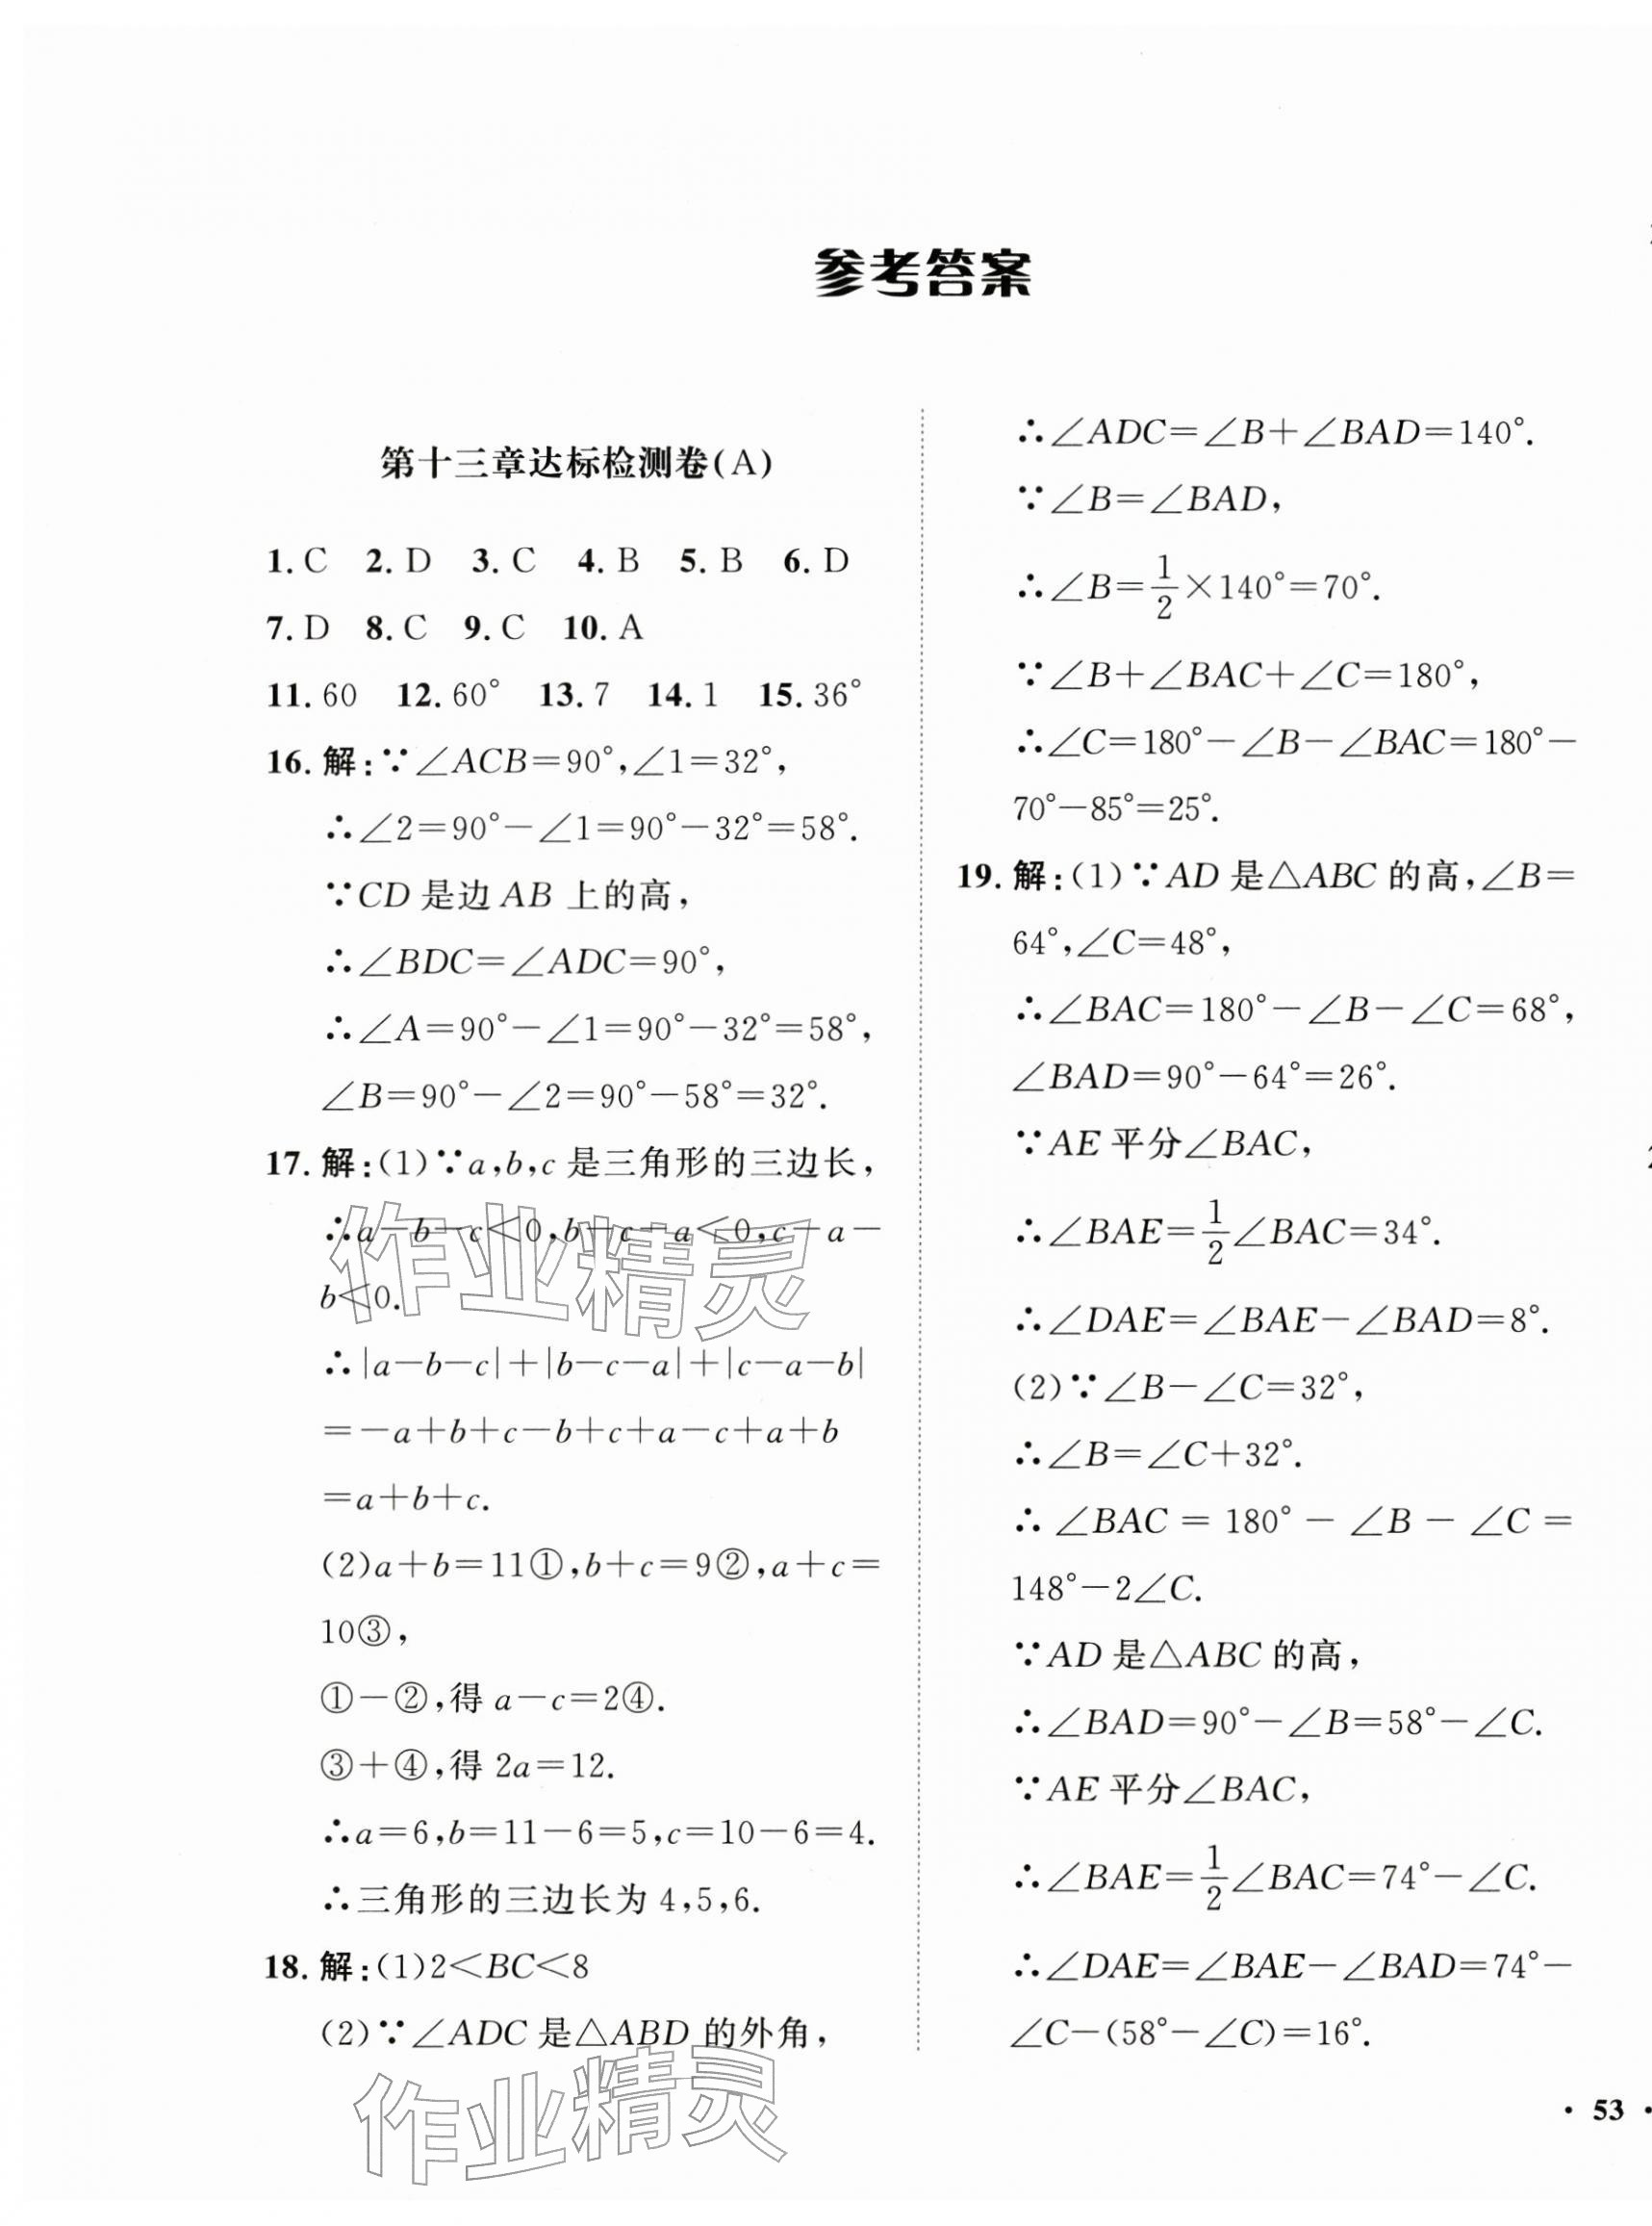 参考答案
第十三章达标检测卷(A)
1. C 2. D 3. C 4. B 5. B 6. D
7. D 8. C 9. C 10. A
11. 60 12. 60° 13. 7 14. 1 15. 36°
16. 解:∵∠ACB=90°,∠1=32°,
∴∠2=90°-∠1=90°-32°=58°.
∵CD 是边 AB 上的高,
∴∠BDC=∠ADC=90°,
∴∠A=90°-∠1=90°-32°=58°,
∠B=90°-∠2=90°-58°=32°.
17. 解:(1)∵a,b,c 是三角形的三边长,
∴a-b-c<0,b-c-a<0,c-a-
b<0.
∴|a-b-c|+|b-c-a|+|c-a-b|
=-a+b+c-b+c+a-c+a+b
=a+b+c.
(2)a+b=11①,b+c=9②,a+c=
10③,
①-②,得 a-c=2④.
③+④,得 2a=12.
∴a=6,b=11-6=5,c=10-6=4.
∴三角形的三边长为 4,5,6.
18. 解:(1)2<BC<8
(2)∵∠ADC 是△ABD 的外角,
∴∠ADC=∠B+∠BAD=140°.
∵∠B=∠BAD,
∴∠B=1/2×140°=70°.
∵∠B+∠BAC+∠C=180°,
∴∠C=180°-∠B-∠BAC=180°-
70°-85°=25°.
19. 解:(1)∵AD 是△ABC 的高,∠B=
64°,∠C=48°,
∴∠BAC=180°-∠B-∠C=68°,
∠BAD=90°-64°=26°.
∵AE 平分∠BAC,
∴∠BAE=1/2∠BAC=34°.
∴∠DAE=∠BAE-∠BAD=8°.
(2)∵∠B-∠C=32°,
∴∠B=∠C+32°.
∴∠BAC=180°-∠B-∠C=
148°-2∠C.
∵AD 是△ABC 的高,
∴∠BAD=90°-∠B=58°-∠C.
∵AE 平分∠BAC,
∴∠BAE=1/2∠BAC=74°-∠C.
∴∠DAE=∠BAE-∠BAD=74°-
∠C-(58°-∠C)=16°.
· 53 ·
作业精灵
作业精灵